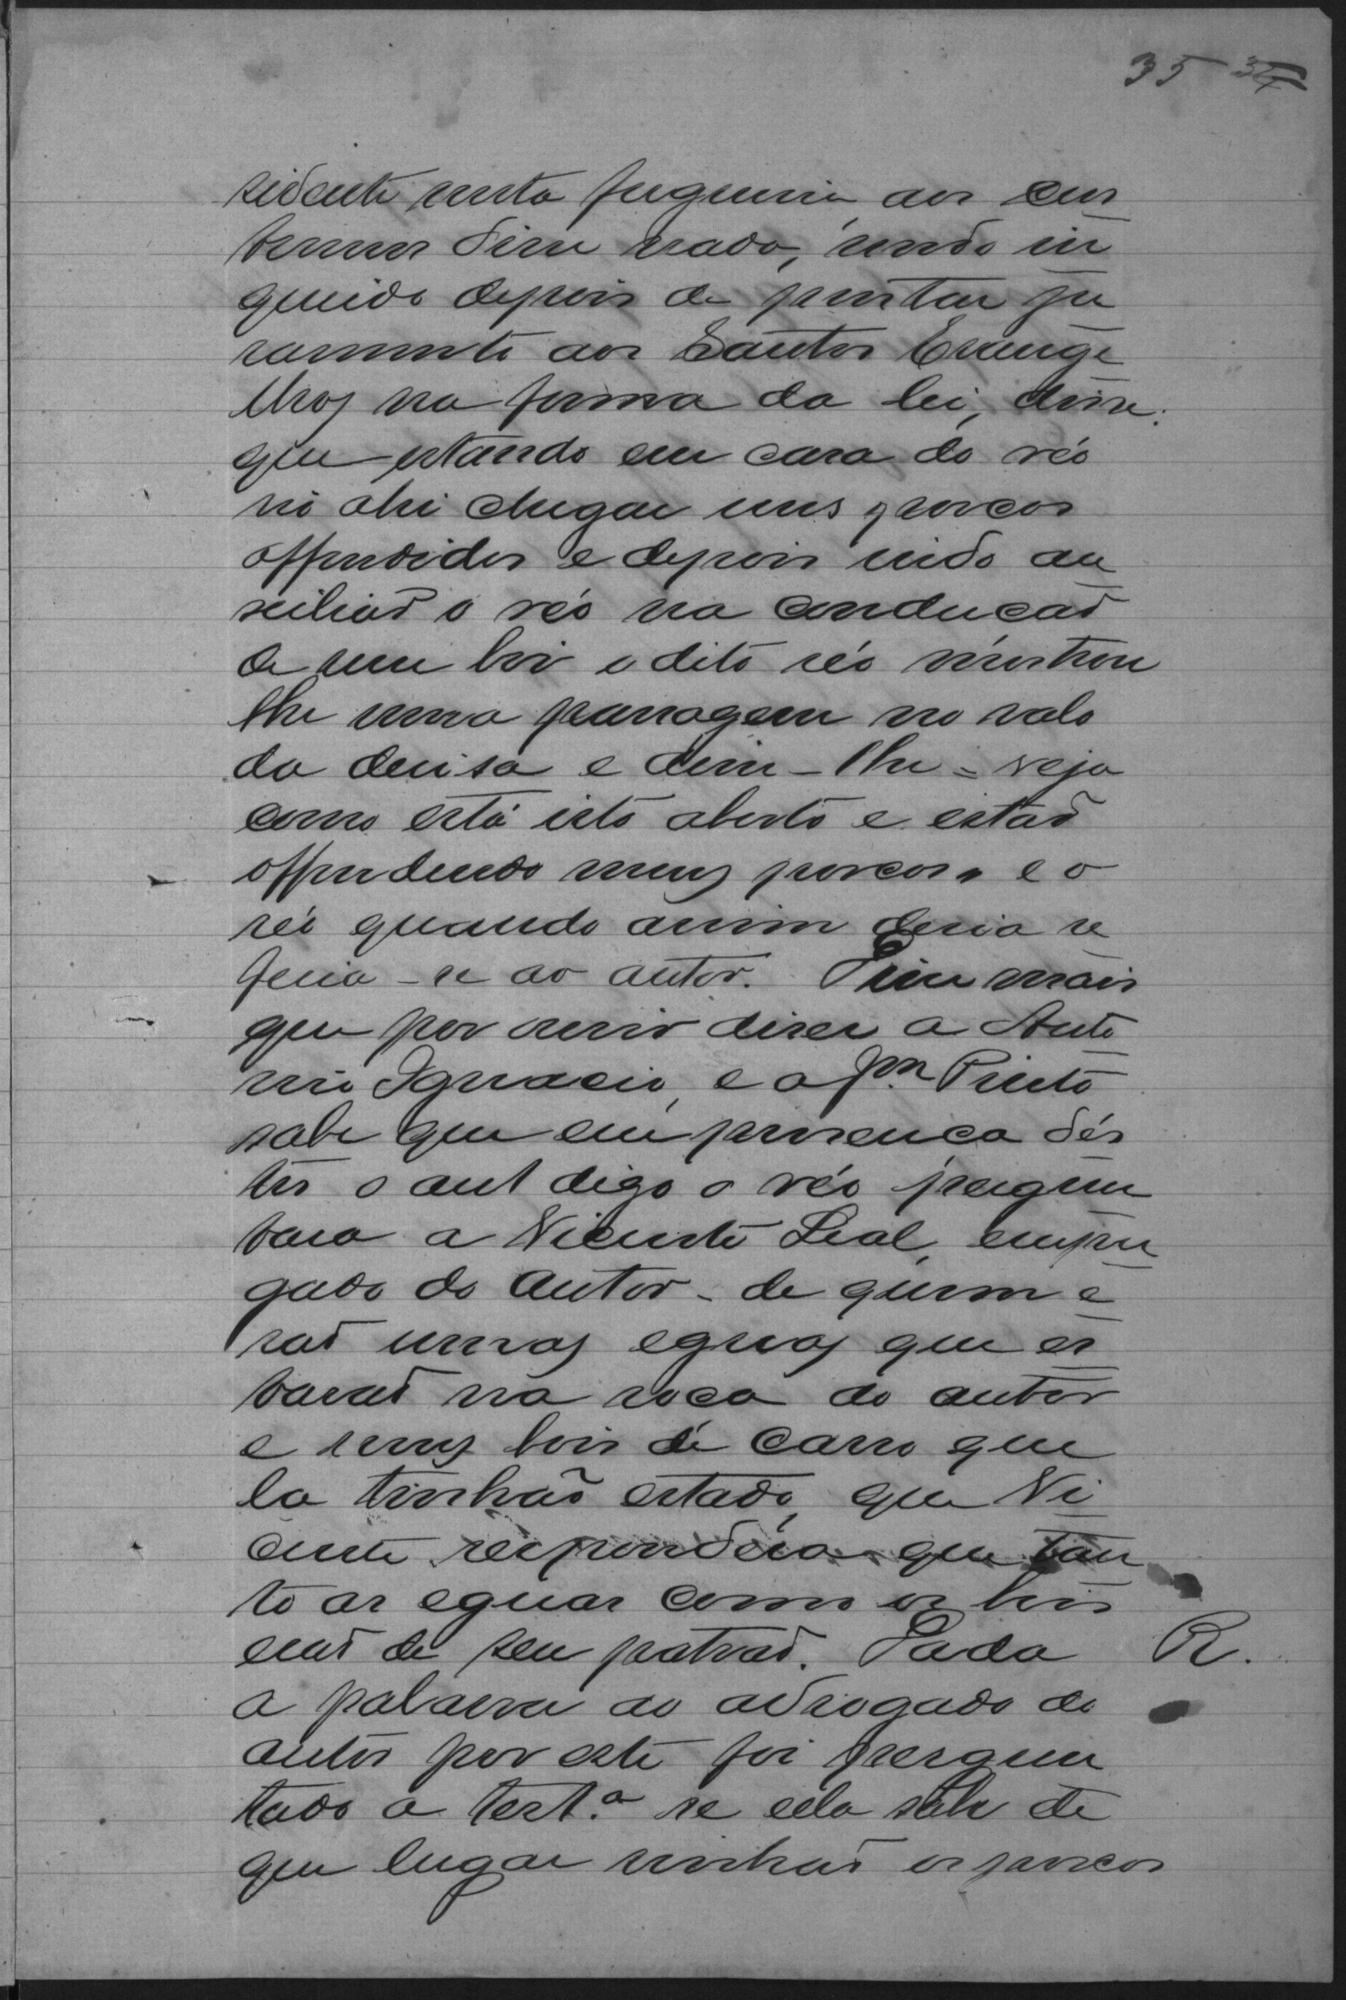 35 34
sidente nesta freguesia, aos cus
tumes disse nada, sendo in
querido depois de prestar ju
ramento aos Santos Evange
lhos na forma da lei, disse:
que estando em casa do réo
vio ahi chegar uns porcos
offendidos e depois indo au
xiliar o réo na conducão
de um boi o dito réo mostrou
lhe uma passagem no vallo
da devisa e disse-lhe = veja
como está isto aberto e estão
offendendo meus porcos" e o
réo quando assim desia re
feria-se ao autor. Disse mais
que por ouvir diser a Anto
nio Ignacio, e a Jm Pinto
sabe que em presenca des
tes o aut digo o réo pergun
tara a Vicente Leal, empre
gado do autor - de quem e
rão umas eguas que es
tavão na roca do autor
e uns bois de carro que
la tinhão estado, que Vi
cente respondera que tan
to as eguas como os bois
erão de seu patrão. Dada R.
a palavra ao advogado do
autor por este foi pergun
tado a test.a se ella sabe de
que lugar vinhão os porcos